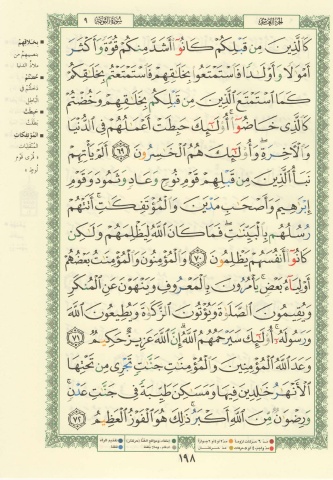 الجزء العاشر
سورة التوبة ٩
كَٱلَّذِينَ مِن قَبْلِكُمْ كَانُوٓا۟ أَشَدَّ مِنكُمْ قُوَّةً وَأَكْثَرَ
أَمْوَٰلًا وَأَوْلَٰدًا فَٱسْتَمْتَعُوا۟ بِخَلَٰقِهِمْ فَٱسْتَمْتَعْتُم بِخَلَٰقِكُمْ
كَمَا ٱسْتَمْتَعَ ٱلَّذِينَ مِن قَبْلِكُم بِخَلَٰقِهِمْ وَخُضْتُمْ
كَٱلَّذِى خَاضُوٓا۟ أُو۟لَٰٓئِكَ حَبِطَتْ أَعْمَٰلُهُمْ فِى ٱلدُّنْيَا
وَٱلْءَاخِرَةِ وَأُو۟لَٰٓئِكَ هُمُ ٱلْخَٰسِرُونَ ٦٩ أَلَمْ يَأْتِهِمْ
نَبَأُ ٱلَّذِينَ مِن قَبْلِهِمْ قَوْمِ نُوحٍ وَعَادٍ وَثَمُودَ وَقَوْمِ
إِبْرَٰهِيمَ وَأَصْحَٰبِ مَدْيَنَ وَٱلْمُؤْتَفِكَٰتِ أَتَتْهُمْ
رُسُلُهُم بِٱلْبَيِّنَٰتِ فَمَا كَانَ ٱللَّهُ لِيَظْلِمَهُمْ وَلَٰكِن
كَانُوٓا۟ أَنفُسَهُمْ يَظْلِمُونَ ٧٠ وَٱلْمُؤْمِنُونَ وَٱلْمُؤْمِنَٰتُ بَعْضُهُمْ
أَوْلِيَآءُ بَعْضٍ يَأْمُرُونَ بِٱلْمَعْرُوفِ وَيَنْهَوْنَ عَنِ ٱلْمُنكَرِ
وَيُقِيمُونَ ٱلصَّلَوٰةَ وَيُؤْتُونَ ٱلزَّكَوٰةَ وَيُطِيعُونَ ٱللَّهَ
وَرَسُولَهُۥٓ أُو۟لَٰٓئِكَ سَيَرْحَمُهُمُ ٱللَّهُ إِنَّ ٱللَّهَ عَزِيزٌ حَكِيمٌ ٧١
وَعَدَ ٱللَّهُ ٱلْمُؤْمِنِينَ وَٱلْمُؤْمِنَٰتِ جَنَّٰتٍ تَجْرِى مِن تَحْتِهَا
ٱلْأَنْهَٰرُ خَٰلِدِينَ فِيهَا وَمَسَٰكِنَ طَيِّبَةً فِى جَنَّٰتِ عَدْنٍ
وَرِضْوَٰنٌ مِّنَ ٱللَّهِ أَكْبَرُ ذَٰلِكَ هُوَ ٱلْفَوْزُ ٱلْعَظِيمُ ٧٢
١٩٨
بخلاقهم
خضتم
حبطت
المؤتفكات